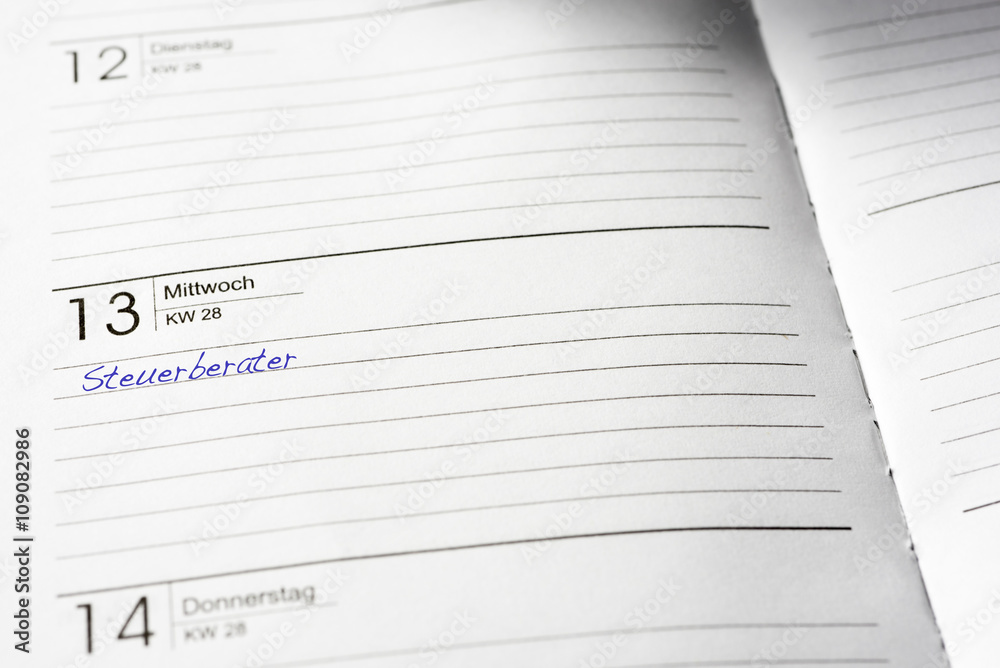 12 Dienstag
KW 28
13 Mittwoch
KW 28
Steuerberater
14 Donnerstag
KW 28
Adobe Stock | #109082986